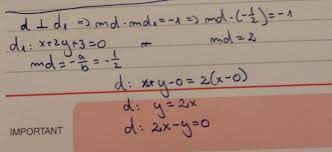 d ⊥ d₁ => md · md₁ = -1 => md · (-1/2) = -1
d₁: x+2y+3=0 md = 2
md = -a/b = -1/2
d: x+y-0 = 2(x-0)
d: y = 2x
d: 2x-y=0
IMPORTANT